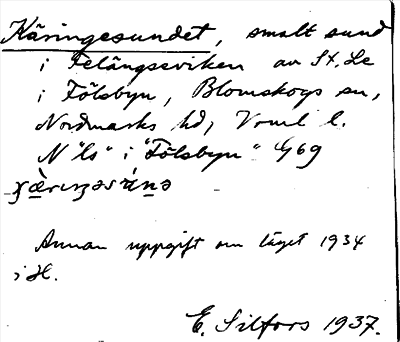 Käringesundet, smalt sund
i Felångseviken av St. Le
i Fölsbyn, Blomskogs sn,
Nordmarks hd, Vrml l.
N "ls" i "Fölsbyn" G69
Annan uppgift om läget 1934
i H.
E. Silfors 1937.